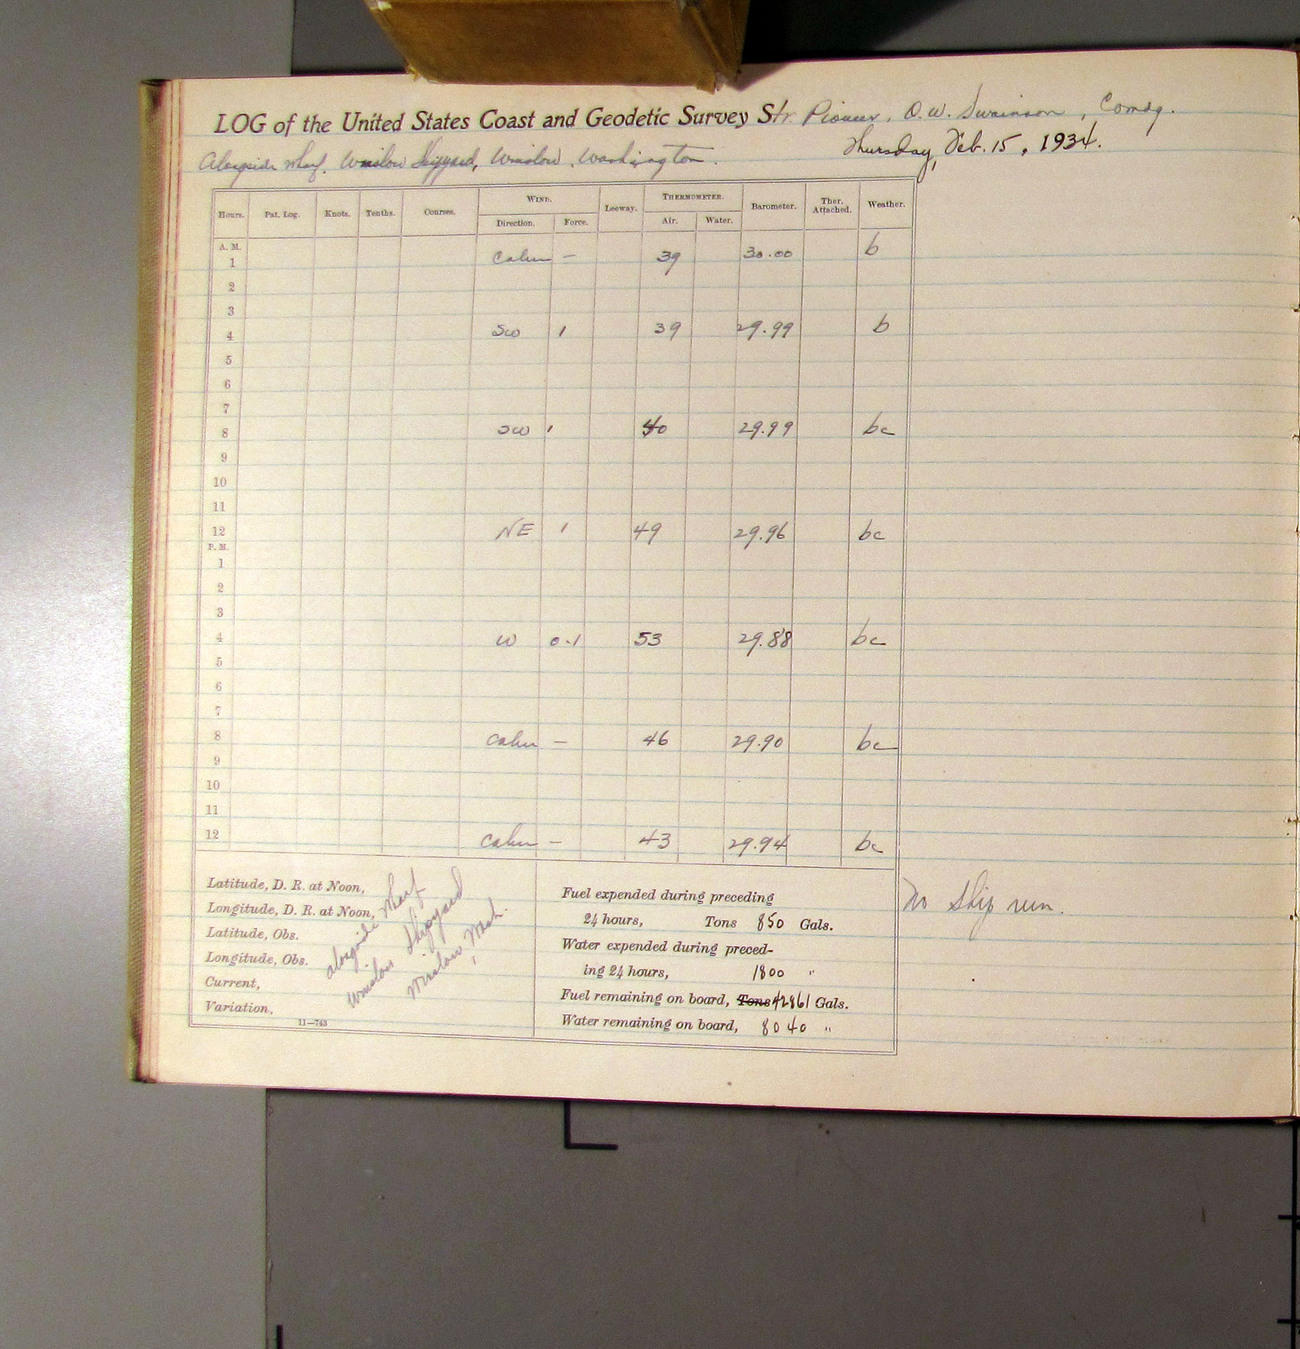 LOG of the United States Coast and Geodetic Survey Str. Pioneer, O.W. Swainson, Comdg.
Alongside Wharf, Winslow Shipyard, Winslow, Washington. Thursday, Feb. 15, 1934.
Hours. Pat. Log. Knots. Tenths. Courses. WIND. Leeway. THERMOMETER. Barometer. Ther. Attached. Weather.
Direction. Force. Air. Water.
A. M.
1 Calm — 39 30.00 b
2
3
4 SW 1 39 29.99 b
5
6
7
8 SW 1 40 29.99 bc
9
10
11
12 NE 1 49 29.96 bc
P. M.
1
2
3
4 W 0-1 53 29.88 bc
5
6
7
8 Calm — 46 29.90 bc
9
10
11
12 Calm — 43 29.94 bc
Latitude, D. R. at Noon,
Longitude, D. R. at Noon,
Latitude, Obs.
Longitude, Obs.
Current,
Variation,
alongside Wharf
Winslow Shipyard
Winslow, Wash.
11—763
Fuel expended during preceding
24 hours, Tons 850 Gals.
Water expended during preced-
ing 24 hours, 1800 "
Fuel remaining on board, Tons 42861 Gals.
Water remaining on board, 8040 "
No Ship run.